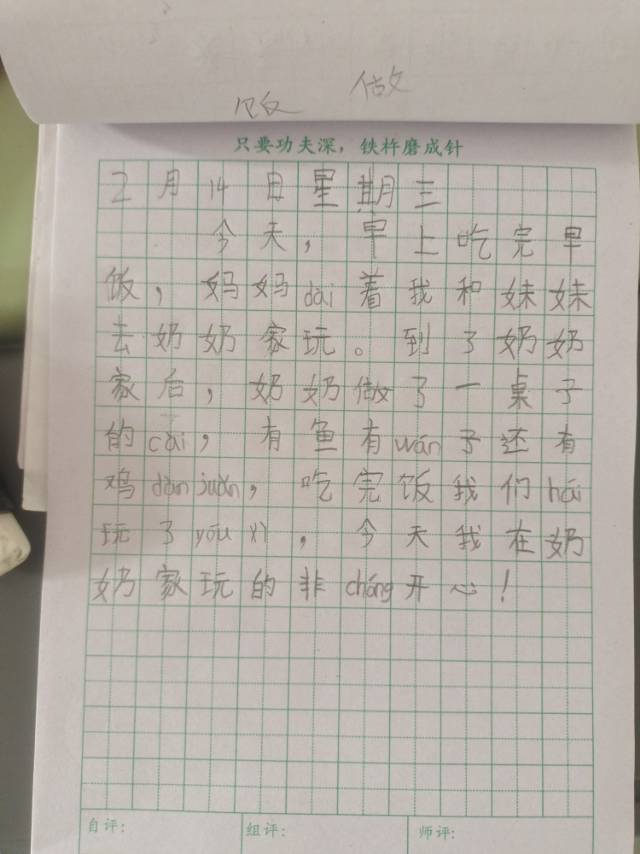 饭 做
只要功夫深，铁杵磨成针
2月14日星期三
今天，早上吃完早
饭，妈妈dài着我和妹妹
去奶奶家玩。到了奶奶
家后，奶奶做了一桌子
的cài，有鱼有wán子还有
鸡dàn juǎn，吃完饭我们hái
玩了yóu xì，今天我在奶
奶家玩的非cháng开心！
自评：
组评：
师评：